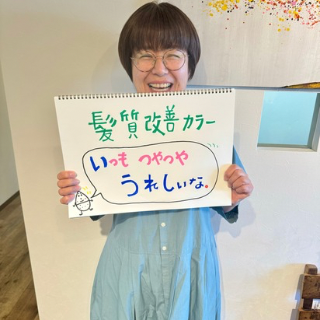 髪質改善カラー
いつも つやつや
うれしいな。